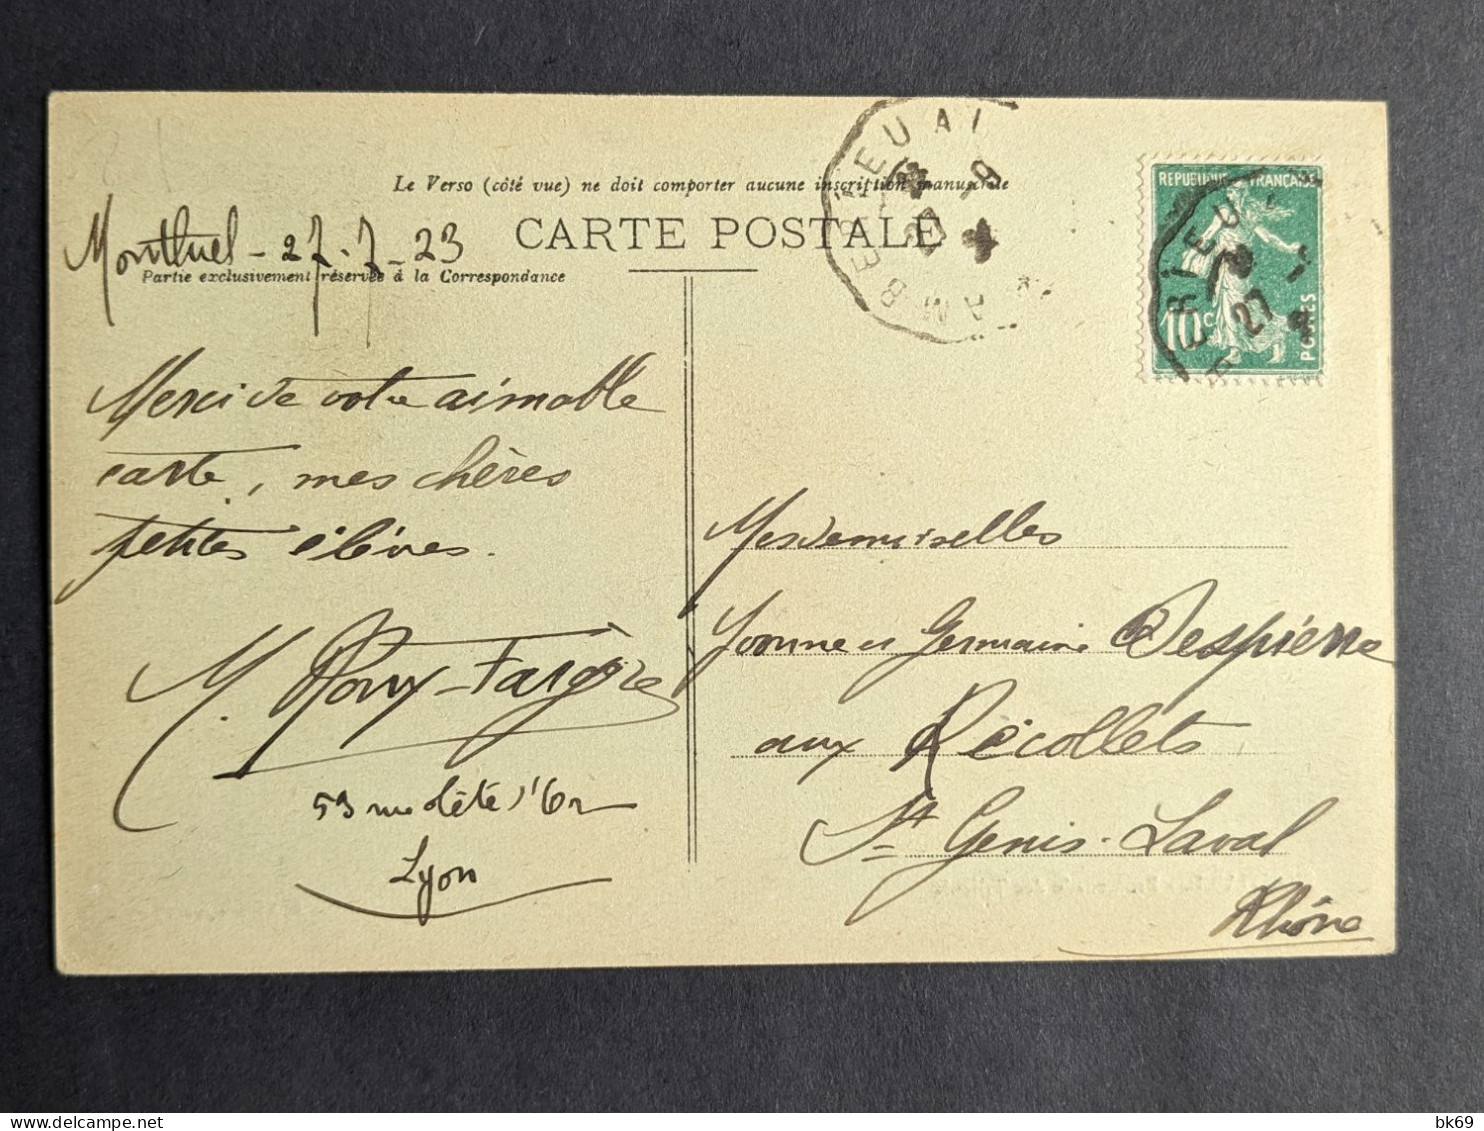 Le Verso (côté vue) ne doit comporter aucune inscription manuscrite
CARTE POSTALE
Montluel - 27.7.23
Partie exclusivement réservée à la Correspondance
Merci de votre aimable
carte, mes chères
petites élèves.
53 rue Tête d'Or
Lyon
AMBERIEU A
27
REPUBLIQUE FRANCAISE
10c
POSTES
ERIEU
27
Mesdemoiselles
Yvonne et Germaine Despierre
aux Récollets
St Genis-Laval
Rhône
bk69